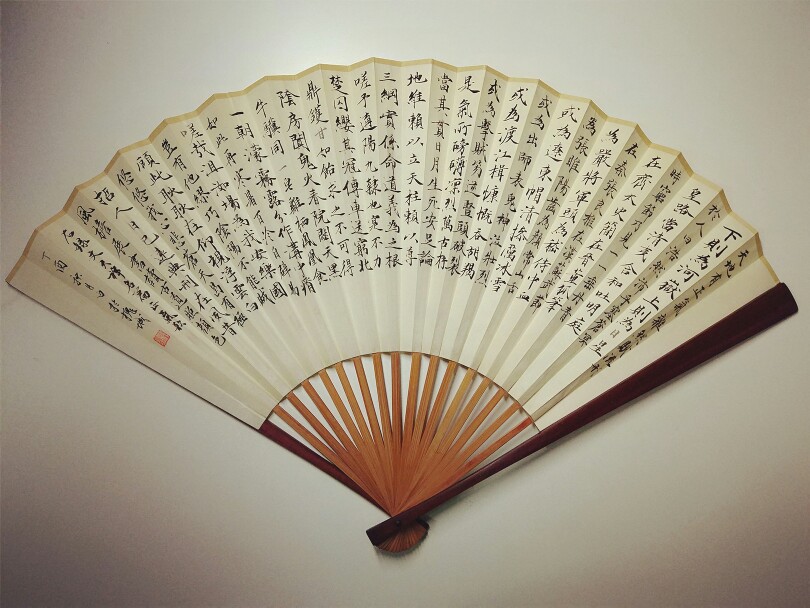 天地有正氣雜然賦流形
下則為河嶽上則為日星
於人曰浩然沛乎塞蒼冥
皇路當清夷含和吐明庭
時窮節乃見一一垂丹青
在齊太史簡在晉董狐筆
在秦張良椎在漢蘇武節
為嚴將軍頭為嵇侍中血
為張睢陽齒為顏常山舌
或為遼東帽清操厲冰雪
或為出師表鬼神泣壯烈
或為渡江楫慷慨吞胡羯
或為擊賊笏逆豎頭破裂
是氣所磅礴凜烈萬古存
當其貫日月生死安足論
地維賴以立天柱賴以尊
三綱實係命道義為之根
嗟予遘陽九隸也實不力
楚囚纓其冠傳車送窮北
鼎鑊甘如飴求之不可得
陰房闃鬼火春院閟天黑
牛驥同一皂雞棲鳳凰食
一朝濛霧露分作溝中瘠
如此再寒暑百沴自辟易
嗟哉沮洳場為我安樂國
豈有他繆巧陰陽不能賊
顧此耿耿在仰視浮雲白
悠悠我心悲蒼天曷有極
哲人日已遠典刑在夙昔
風簷展書讀古道照顏色
右錄文天祥正氣歌
丁酉秋月